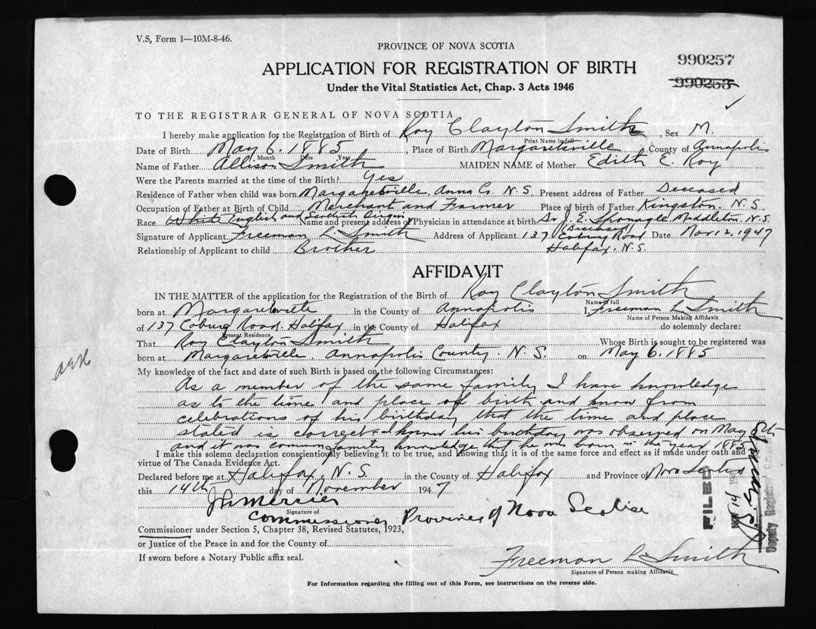 V.S, Form 1—10M-8-46.
PROVINCE OF NOVA SCOTIA
990257
APPLICATION FOR REGISTRATION OF BIRTH
990253
Under the Vital Statistics Act, Chap. 3 Acts 1946
TO THE REGISTRAR GENERAL OF NOVA SCOTIA
I hereby make application for the Registration of Birth of Roy Clayton Smith, Sex M.
Print Name in full
Date of Birth May 6. 1885, Place of Birth Margaretsville County of Annapolis
Month Date Year
Name of Father Allison Smith MAIDEN NAME of Mother Edith E. Roy
Were the Parents married at the time of the Birth? Yes
Residence of Father when child was born Margaretsville, Anna Co. N.S. Present address of Father Deceased
Occupation of Father at Birth of Child Merchant and Farmer Place of birth of Father Kingston, N.S.
Race White English and Scottish Origin Name and present address of Physician in attendance at birth Dr. J. E. Sponagle Middleton, N.S.
(Deceased)
Signature of Applicant Freeman L. Smith Address of Applicant 137 Coburg Road Date Nov 12, 1947
Relationship of Applicant to child Brother Halifax, N.S.
AFFIDAVIT
IN THE MATTER of the application for the Registration of the Birth of Roy Clayton Smith
Name in full
born at Margaretsville in the County of Annapolis I, Freeman L. Smith
Name of Person Making Affidavit
of 137 Coburg Road, Halifax, in the County of Halifax do solemnly declare:
Present Residence
That Roy Clayton Smith Whose Birth is sought to be registered was
born at Margaretsville, Annapolis County. N.S. on May 6. 1885
My knowledge of the fact and date of such Birth is based on the following Circumstances:
As a member of the same family I have knowledge
as to the time and place of birth and know from
celebrations of his birthday that the time and place
stated is correct. I know his birthday was observed on May 6th
and it was common family knowledge that he was born in the year 1885
I make this solemn declaration conscientiously believing it to be true, and knowing that it is of the same force and effect as if made under oath and
virtue of The Canada Evidence Act.
Declared before me at Halifax, N.S in the County of Halifax and Province of Nova Scotia
this 14th day of November 1947
Signature of
Commissioner Province of Nova Scotia
Commissioner under Section 5, Chapter 38, Revised Statutes, 1923,
or Justice of the Peace in and for the County of
If sworn before a Notary Public affix seal.
Freeman L. Smith
Signature of Person making Affidavit
FILED
Deputy Registrar
For Information regarding the filling out of this Form, see instructions on the reverse side.